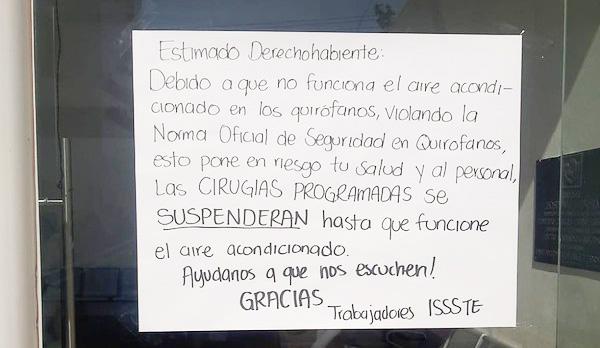 Estimado Derechohabiente:
Debido a que no funciona el aire acondi-
cionado en los quirófanos, violando la
Norma Oficial de Seguridad en Quirofanos,
esto pone en riesgo tu salud y al personal,
Las CIRUGIAS PROGRAMADAS se
SUSPENDERAN hasta que funcione
el aire acondicionado.
Ayudanos a que nos escuchen!
GRACIAS
Trabajadores ISSSTE